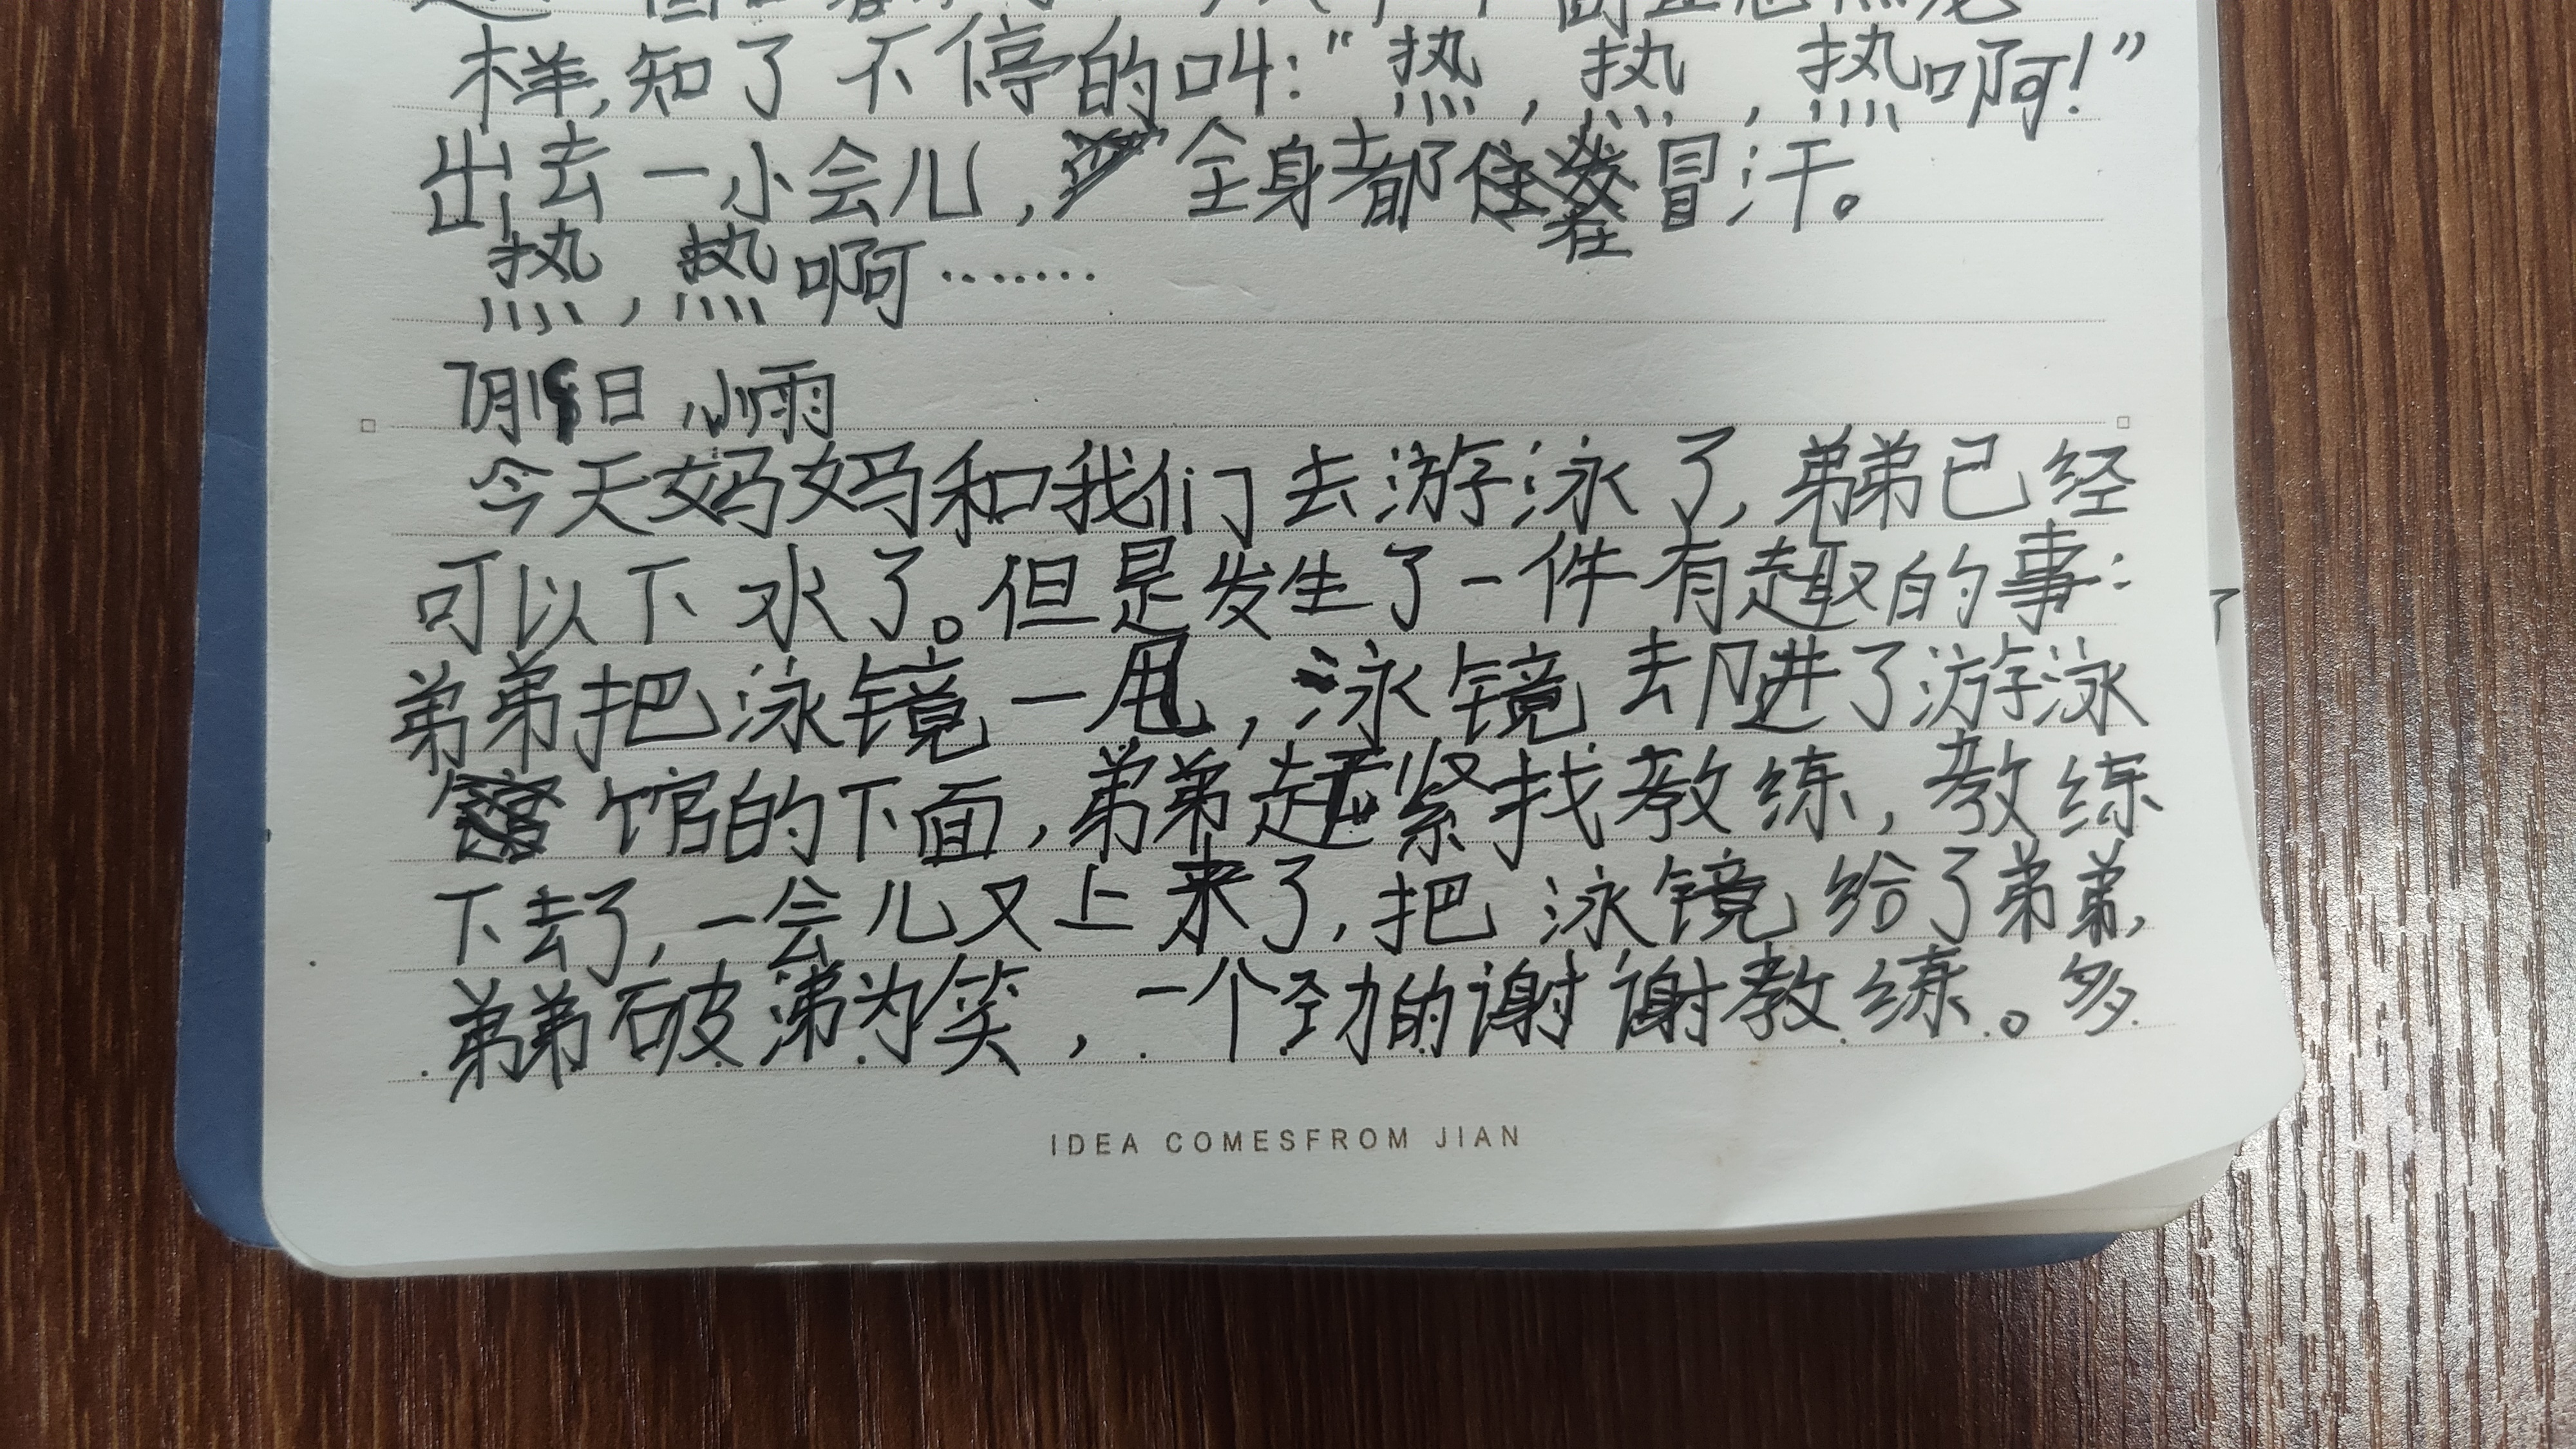 样,知了不停的叫:“热,热,热啊!”
出去一小会儿,全身都在冒汗。
热,热啊……
7月18日 小雨
今天妈妈和我们去游泳了,弟弟已经
可以下水了。但是发生了一件有趣的事:
弟弟把泳镜一甩,泳镜去进了游泳
馆的下面,弟弟赶紧找教练,教练
下去了,一会儿又上来了,把泳镜给了弟弟,
弟弟破涕为笑,一个劲的谢谢教练。多
IDEA COMESFROM JIAN